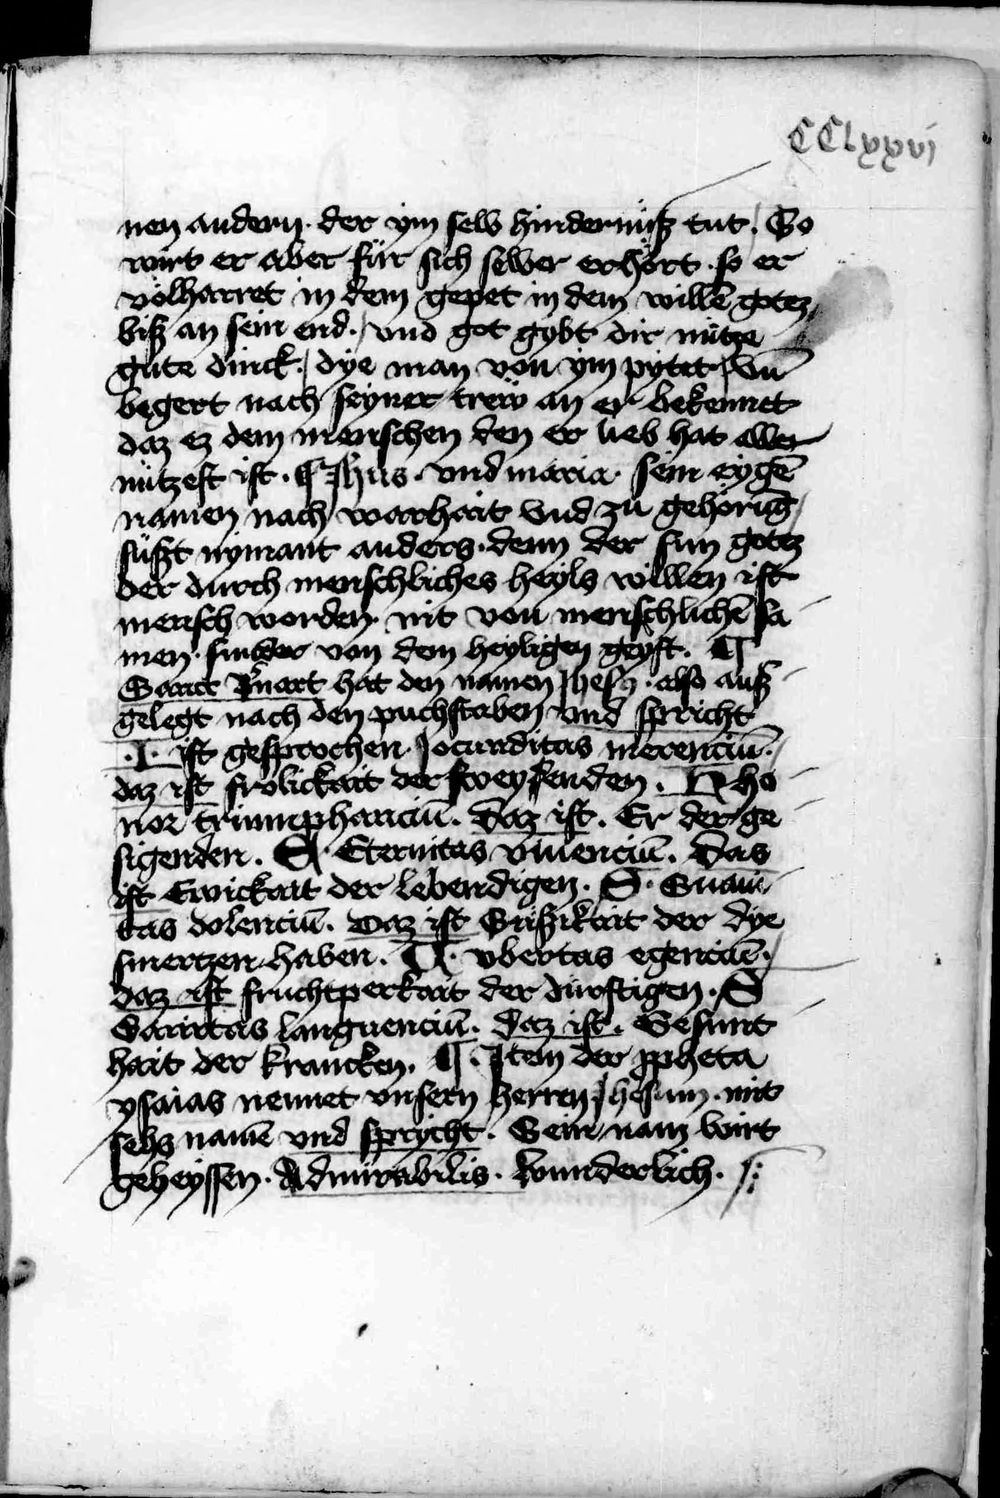 CCLxxvj
nen andern · der ym selb hindernüß tut / So
wirt er aber für sich selber erhört · so er
volharret in dem gepet in dem willē gotez
biß an sein end · / vnd got gybt dir nütze
gute dinck · / dye man von ym pytet / vn̄
begert nach seyner trew an er bekennet
daz ez dem menschen den er lieb hat aller
nützest ist · ¶ Jhus · vnd maria · sein eygē
namen nach warhait vnd zu gehörūg /
füßt nymant anders · denn der sun gotez
der durch menschliches heyls willen ist
mensch worden · nit von menschlichē sa
men · sunder von dem heyligen geyst · ¶
Sanct B̄nart hat den namen Jhesꝫ · also auß
gelegt nach den puchstaben vnd spricht
· I · ist gesprochen Jocunditas merenciū ·
daz ist frolickait der traurenden · H ho
nor triumphanciū · daz ist · Er der ge
sigenden · E · Eternitas viuenciū · Das
ist Ewickait der lebendigen · S · Suaui
tas dolenciū · Daz ist Süßikait der dye
smertzen haben · V · vbertas egenciū ·
daz ist fruchtperkait der dürftigen · S
Sanitas languenciū · Daz ist · Gesunt
hait der krancken · ¶ · Item der ꝓpheta
ysaias nennet vnsern herren Jhesum · mit
sehs namē vnd sprycht · Sein nam wirt
geheyssen · Admirabilis · wunderlich ·